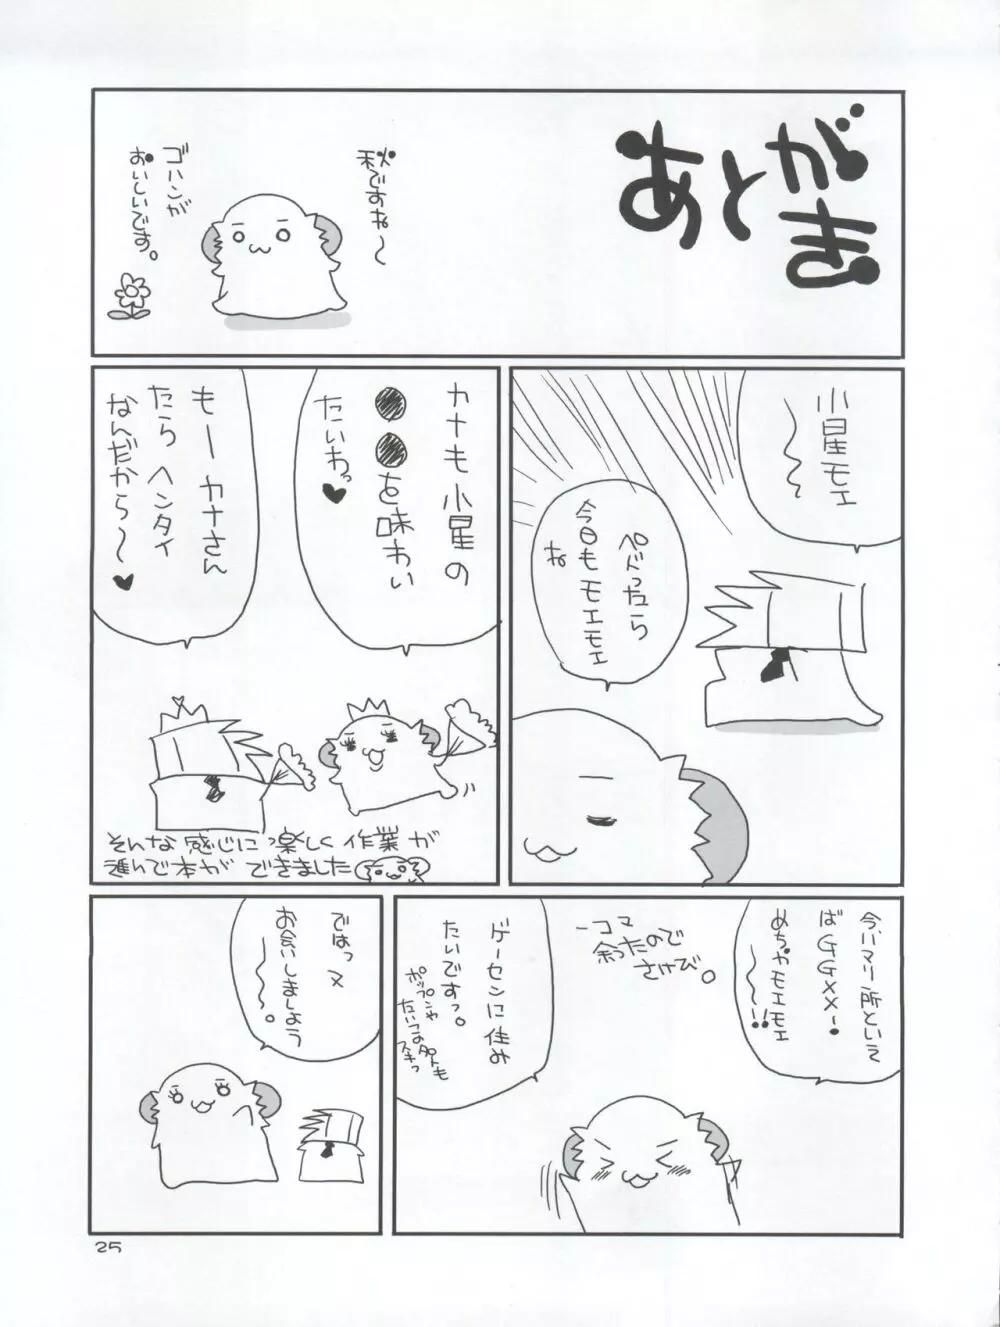 あとがき
秋ですね〜
ゴハンが
おいしいです。
小星モエ
ペドったら
今日もモエモエ
ね
カナも小星の
●●を味わい
たいわっ♥
もーカナさん
たら ヘンタイ
なんだから〜♥
そんな感じにっ楽しく作業が
進んで本ができました
今ハマリ所といえ
ばGGXX!
めちゃモエモエ
〜!!
一コマ
余ったので
さけび。
ゲーセンに住み
たいですっ。
ポップンや
たいつよ
スキっ
ではっヌ
お会いしましょう
〜。
25